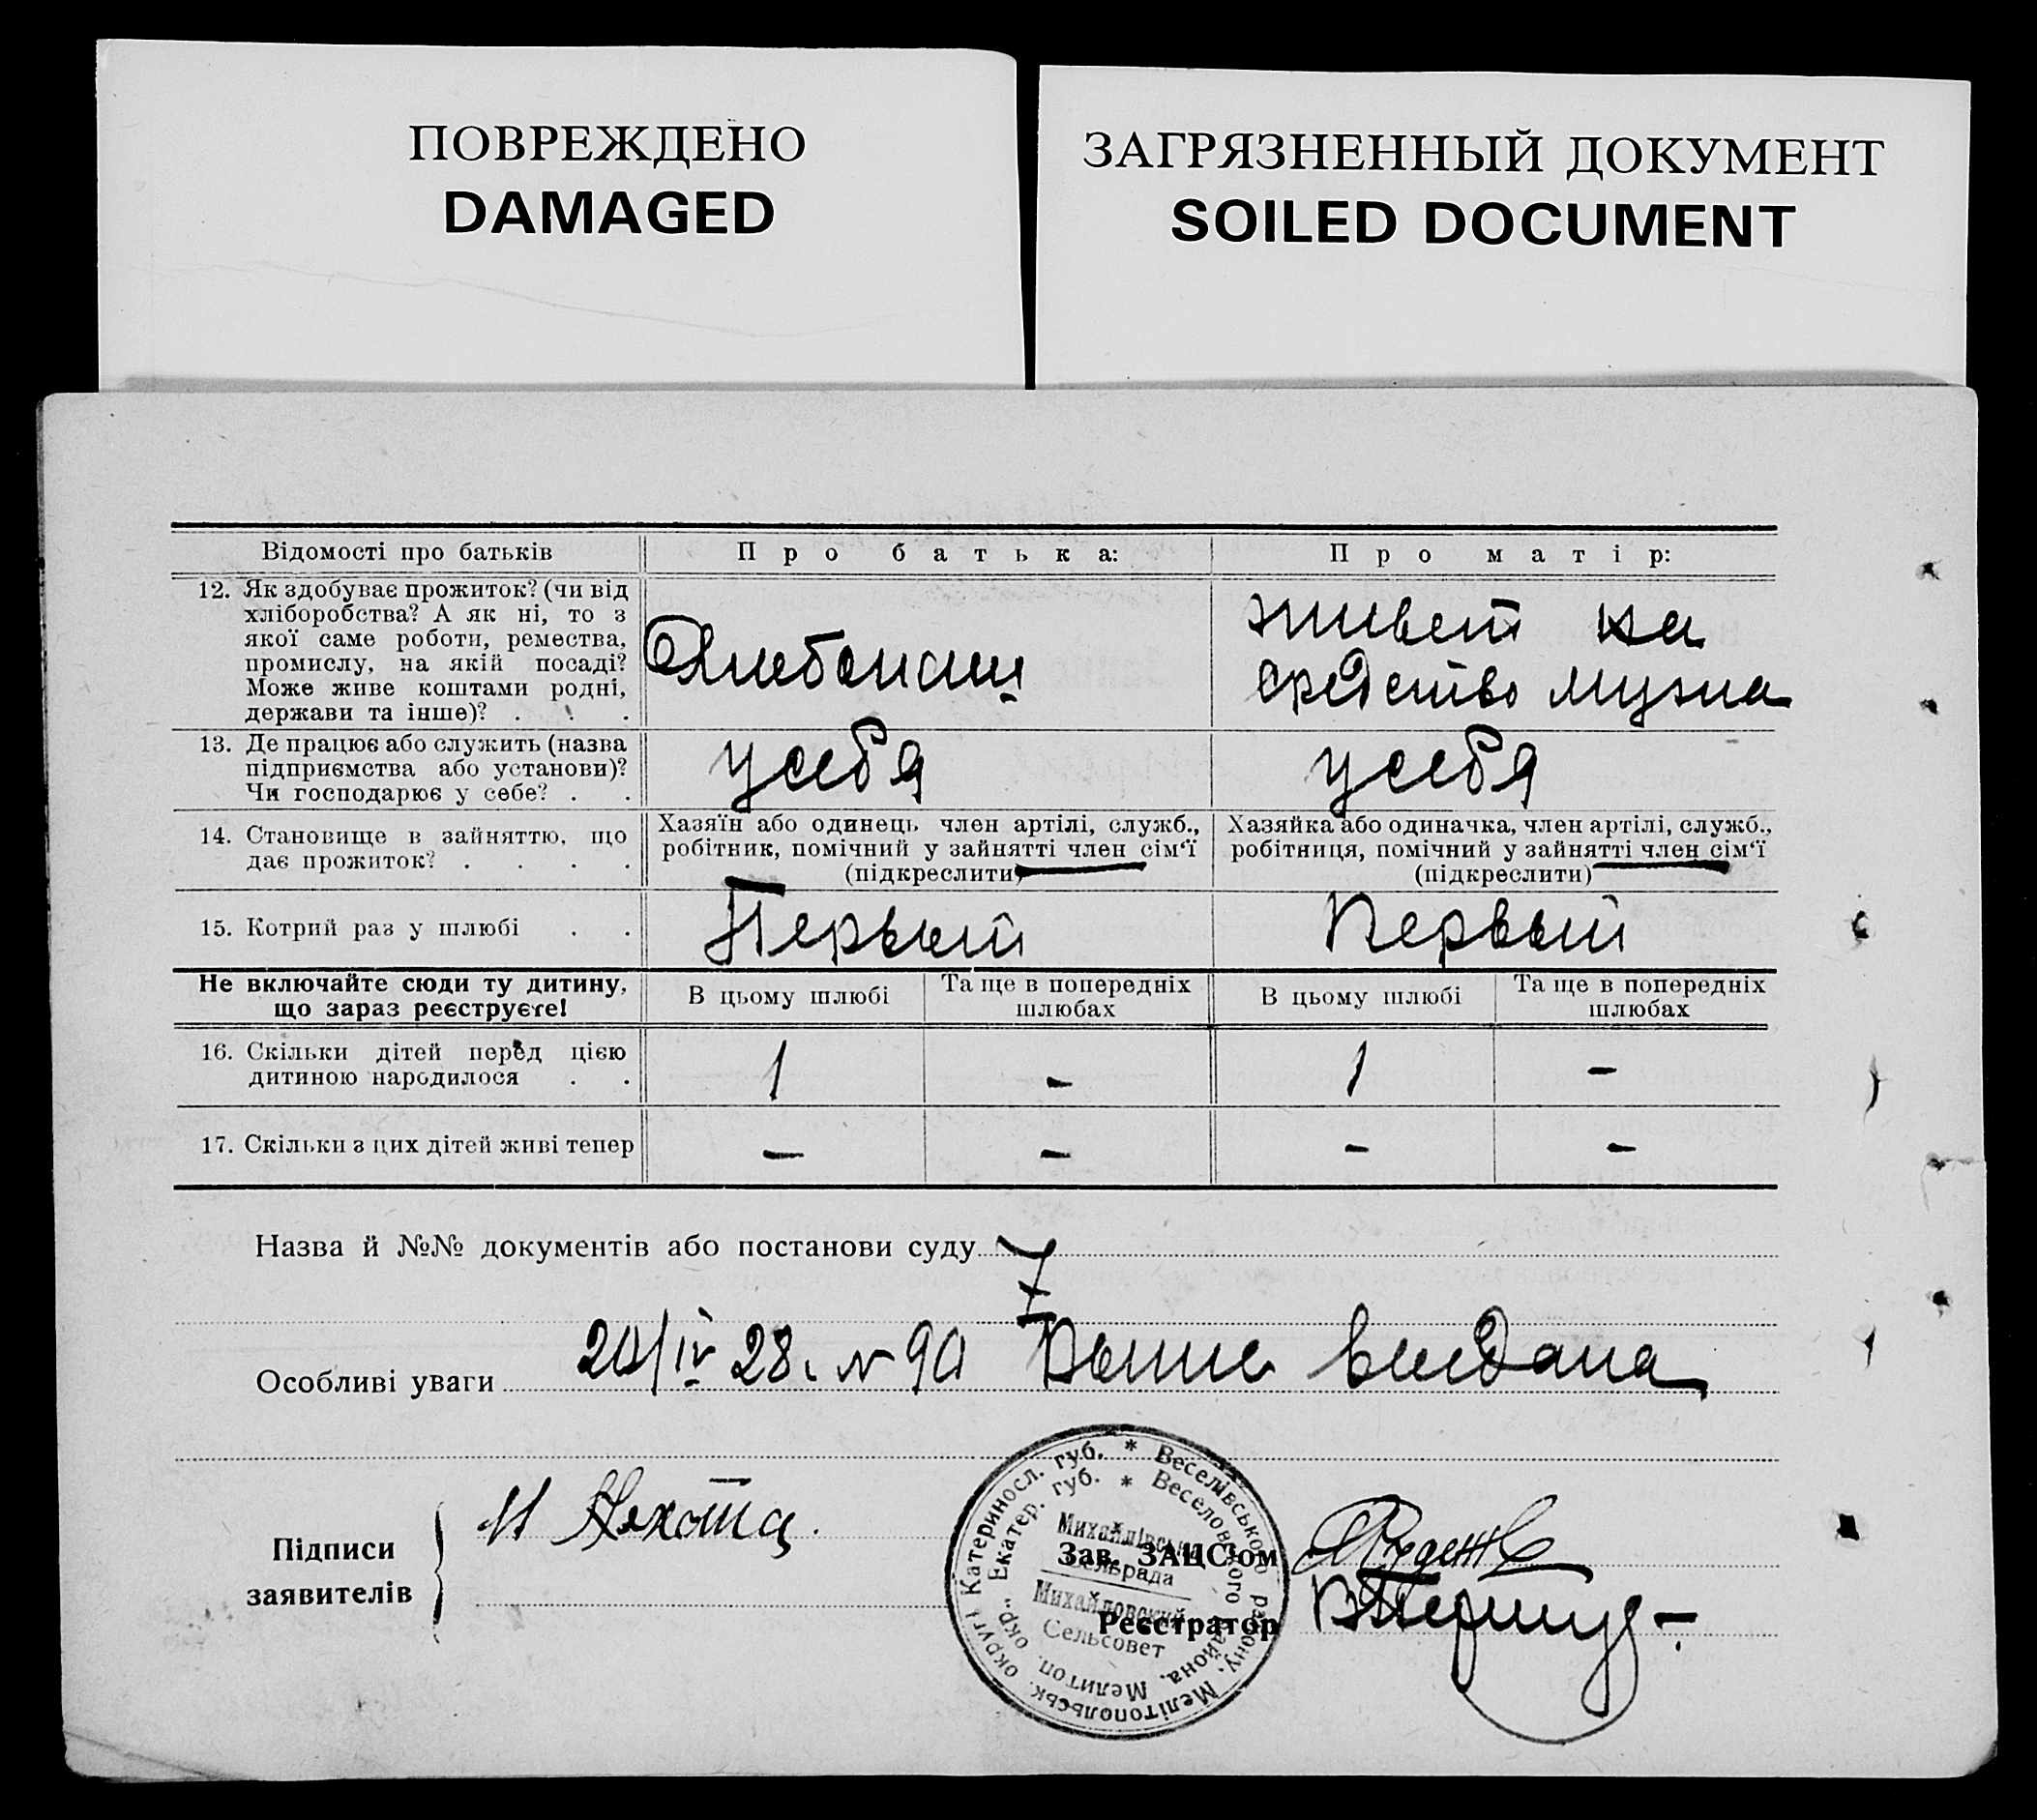 ПОВРЕЖДЕНО
DAMAGED
ЗАГРЯЗНЕННЫЙ ДОКУМЕНТ
SOILED DOCUMENT
Відомості про батьків
Про батька:
Про матір:
12. Як здобуває прожиток? (чи від
хліборобства? А як ні, то з
якої саме роботи, ремества,
промислу, на якій посаді?
Може живе коштами родні,
держави та інше)? . . .
живет на
средство мужа
13. Де працює або служить (назва
підприємства або установи)?
Чи господарює у себе? . .
у себя
у себя
14. Становище в зайняттю, що
дає прожиток? . . . .
Хазяїн або одинець член артілі, служб.,
робітник, помічний у зайнятті член сім‘ї
(підкреслити)
Хазяйка або одиначка, член артілі, служб.,
робітниця, помічний у зайнятті член сім‘ї
(підкреслити)
15. Котрий раз у шлюбі . .
Первый
Первый
Не включайте сюди ту дитину,
що зараз реєструєте!
В цьому шлюбі
Та ще в попередніх
шлюбах
В цьому шлюбі
Та ще в попередніх
шлюбах
16. Скільки дітей перед цією
дитиною народилося . .
1
-
1
-
17. Скільки з цих дітей живі тепер
-
-
-
-
Назва й №№ документів або постанови суду
Особливі уваги
28. № 90
Підписи
заявителів
Зав. ЗАЦС'ом
Реєстратор
Катериносл. губ. * Веселівського району, Мелітопольськ. округі
Екатер. губ. * Веселовского района, Мелитоп. окр.
Михайлівська
сельрада
Михайловский
Сельсовет